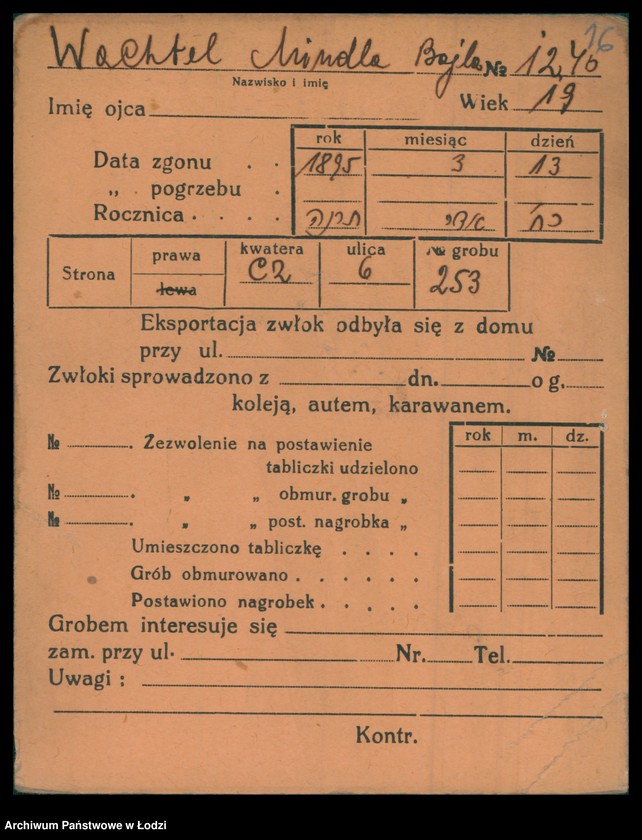 16
Wachtel Mindla Bajla № 12,40
Nazwisko i imię
Imię ojca Wiek 19
rok miesiąc dzień
Data zgonu . . 1895 3 13
„ pogrzebu .
Rocznica . . . . תרנה אדר כח
Strona prawa lewa kwatera C2 ulica 6 № grobu 253
Eksportacja zwłok odbyła się z domu
przy ul. №
Zwłoki sprowadzono z dn. o g.
koleją, autem, karawanem.
rok m. dz.
№ . Zezwolenie na postawienie
tabliczki udzielono
№ . „ „ obmur. grobu „
№ . „ „ post. nagrobka „
Umieszczono tabliczkę . . . .
Grób obmurowano . . . . . .
Postawiono nagrobek . . . . .
Grobem interesuje się
zam. przy ul. Nr. Tel.
Uwagi :
Kontr.
Archiwum Państwowe w Łodzi